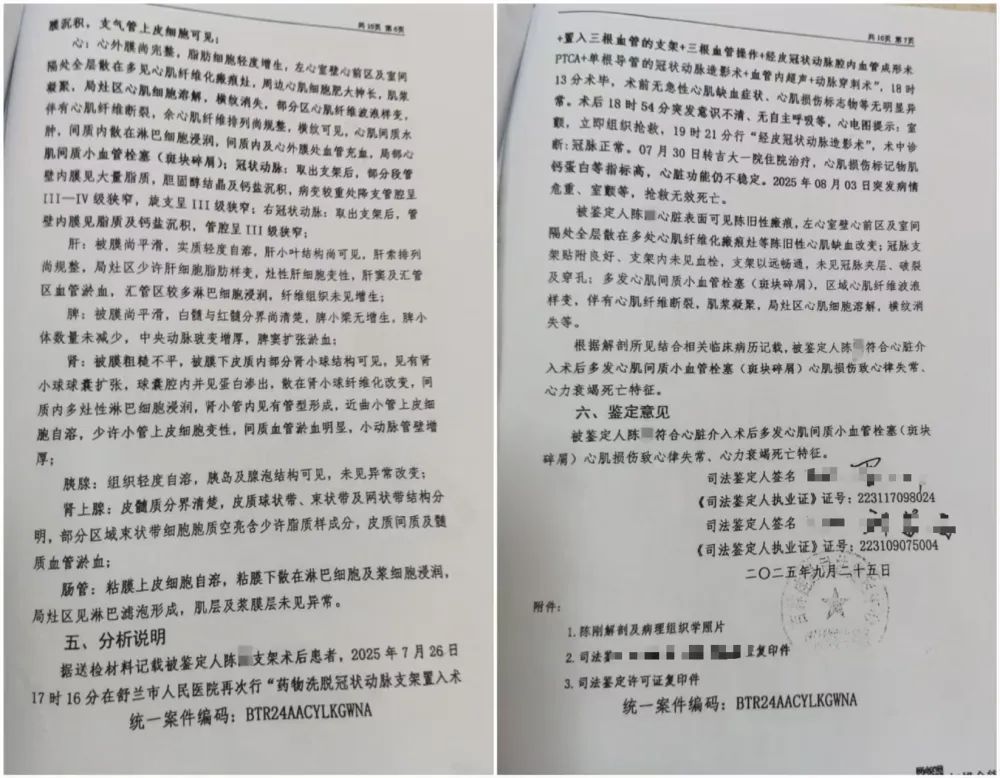 共10页 第6页
膜沉积，支气管上皮细胞可见；
心：心外膜尚完整，脂肪细胞轻度增生，左心室壁心前区及室间
隔处全层散在多见心肌纤维化瘢痕灶，周边心肌细胞肥大抻长，肌浆
凝聚，局灶区心肌细胞溶解，横纹消失，部分区心肌纤维波浪样变，
伴有心肌纤维断裂，余心肌纤维排列尚规整，横纹可见，心肌间质水
肿，间质内散在淋巴细胞浸润，间质内及心外膜处血管充血，局部心
肌间质小血管栓塞（斑块碎屑）；冠状动脉：取出支架后，部分段管
壁内膜见大量脂质，胆固醇结晶及钙盐沉积，病变较重处降支管腔呈
III—IV级狭窄，旋支呈III级狭窄；右冠状动脉：取出支架后，管
壁内膜见脂质及钙盐沉积，管腔呈III级狭窄；
肝：被膜尚平滑，实质轻度自溶，肝小叶结构尚可见，肝索排列
尚规整，局灶区少许肝细胞脂肪样变，灶性肝细胞变性，肝窦及汇管
区血管淤血，汇管区较多淋巴细胞浸润，纤维组织未见增生；
脾：被膜尚平滑，白髓与红髓分界尚清楚，脾小梁无增生，脾小
体数量未减少，中央动脉玻变增厚，脾窦扩张淤血；
肾：被膜粗糙不平，被膜下皮质内部分肾小球结构可见，见有肾
小球球囊扩张，球囊腔内并见蛋白渗出，散在肾小球纤维化改变，间
质内多灶性淋巴细胞浸润，肾小管内见有管型形成，近曲小管上皮细
胞自溶，少许小管上皮细胞变性，间质血管淤血明显，小动脉管壁增
厚；
胰腺：组织轻度自溶，胰岛及腺泡结构可见，未见异常改变；
肾上腺：皮髓质分界清楚，皮质球状带、束状带及网状带结构分
明，部分区域束状带细胞胞质空亮含少许脂质样成分，皮质间质及髓
质血管淤血；
肠管：粘膜上皮细胞自溶，粘膜下散在淋巴细胞及浆细胞浸润，
局灶区见淋巴滤泡形成，肌层及浆膜层未见异常。
五、分析说明
据送检材料记载被鉴定人陈 支架术后患者，2025年7月26日
17时16分在舒兰市人民医院再次行“药物洗脱冠状动脉支架置入术
统一案件编码：BTR24AACYLKGWNA
共10页 第7页
+置入三根血管的支架+三根血管操作+经皮冠状动脉腔内血管成形术
PTCA+单根导管的冠状动脉造影术+血管内超声+动脉穿刺术”，18时
13分术毕，术前无急性心肌缺血症状、心肌损伤标志物等无明显异
常。术后18时54分突发意识不清、无自主呼吸等，心电图提示：室
颤，立即组织抢救，19时21分行“经皮冠状动脉造影术”，术中诊
断：冠脉正常。07月30日转吉大一院住院治疗，心肌损伤标记物肌
钙蛋白等指标高，心脏功能仍不稳定。2025年08月03日突发病情
危重、室颤等，抢救无效死亡。
被鉴定人陈 心脏表面可见陈旧性瘢痕，左心室壁心前区及室间
隔处全层散在多处心肌纤维化瘢痕灶等陈旧性心肌缺血改变；冠脉支
架贴附良好、支架内未见血栓，支架以远畅通，未见冠脉夹层、破裂
及穿孔；多发心肌间质小血管栓塞（斑块碎屑），区域心肌纤维波液
样变，伴有心肌纤维断裂，肌浆凝聚，局灶区心肌细胞溶解，横纹消
失等。
根据解剖所见结合相关临床病历记载，被鉴定人陈 符合心脏介
入术后多发心肌间质小血管栓塞（斑块碎屑）心肌损伤致心律失常、
心力衰竭死亡特征。
六、鉴定意见
被鉴定人陈 符合心脏介入术后多发心肌间质小血管栓塞（斑块
碎屑）心肌损伤致心律失常、心力衰竭死亡特征。
司法鉴定人签名
《司法鉴定人执业证》证号：223117098024
司法鉴定人签名
《司法鉴定人执业证》证号：223109075004
二〇二五年九月二十五日
附件：
1.陈刚解剖及病理组织学照片
2.司法 复印件
3.司法鉴定许可证复印件
统一案件编码：BTR24AACYLKGWNA